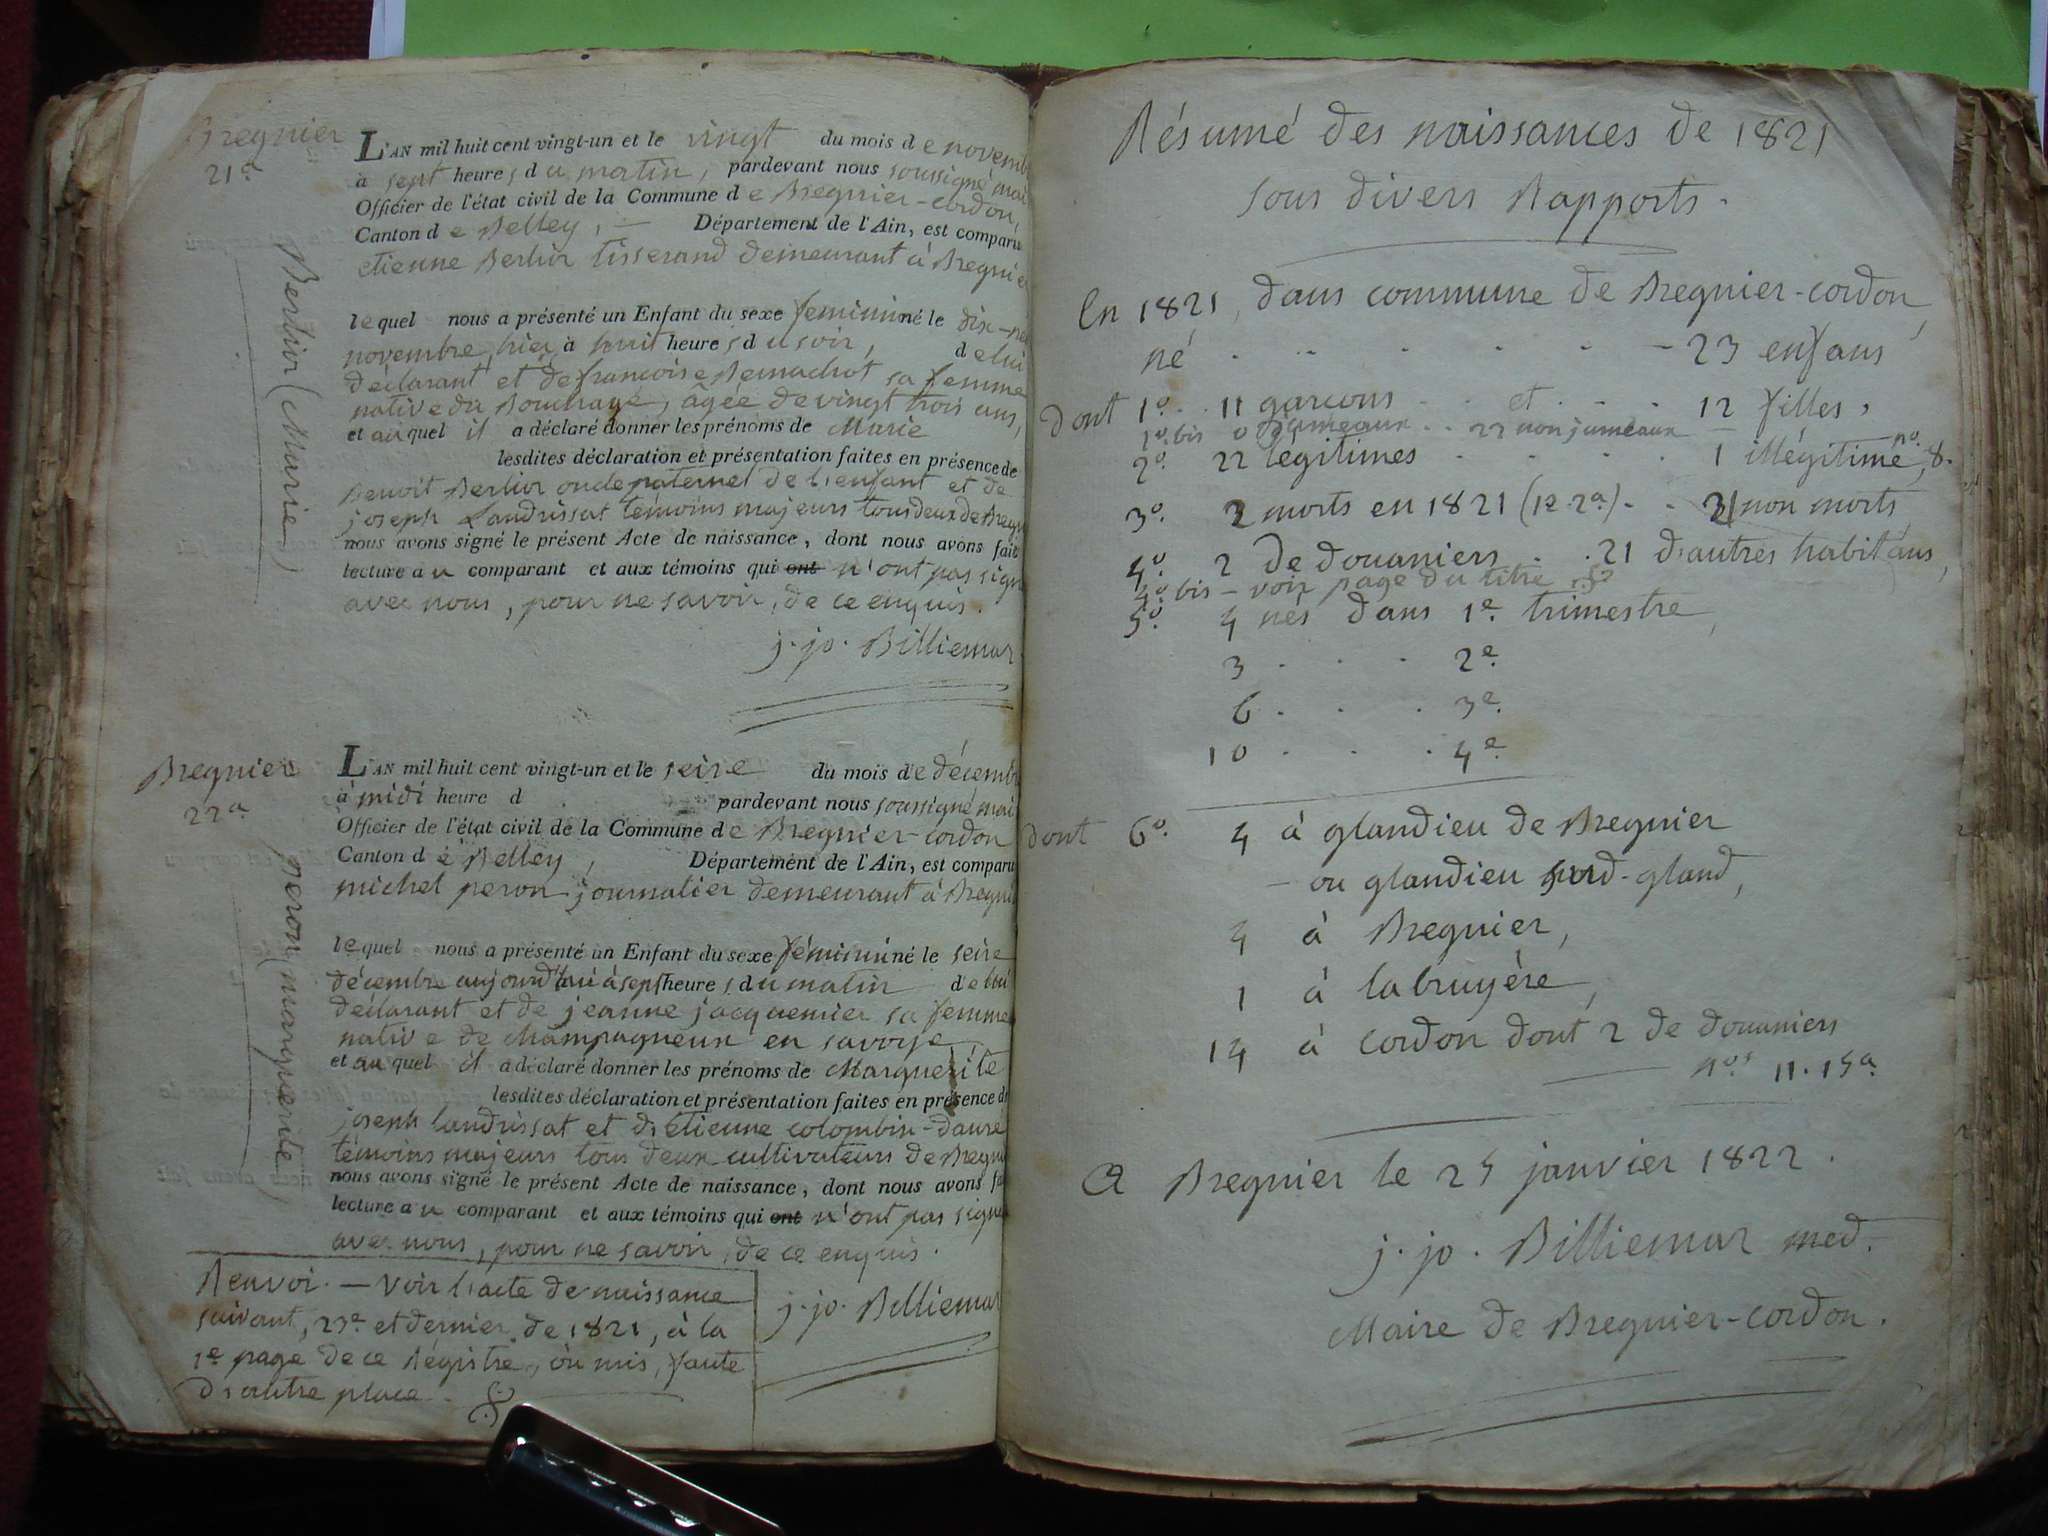 Bregnier
21e
Berlior (Marie)
L'AN mil huit cent vingt-un et le vingt du mois de novemb
à sept heures du matin, pardevant nous soussigné mai
Officier de l'état civil de la Commune de Bregnier-cordon,
Canton de Belley, — Département de l'Ain, est comparu
etienne Berlior tisserand demeurant à Bregnie
lequel nous a présenté un Enfant du sexe feminin né le dix-ne
novembre, hier, à huit heures du soir, de lui
déclarant et de françoise Bernachot sa femme
native du Bouchage, âgée de vingt trois ans,
et auquel il a déclaré donner les prénoms de Marie
lesdites déclaration et présentation faites en présence de
Benoit Berlior oncle paternel de l'enfant et de
joseph Landrissat témoins majeurs tous deux de Bregn
nous avons signé le présent Acte de naissance, dont nous avons fait
lecture au comparant et aux témoins qui ont n'ont pas signé
avec nous, pour ne savoir, de ce enquis.
j. jo. Billiemar
Bregnier
22a
peron (marguerite)
L'AN mil huit cent vingt-un et le seize du mois de décemb
à midi heure d pardevant nous soussigné mai
Officier de l'état civil de la Commune de Bregnier-cordon
Canton de Belley, Département de l'Ain, est comparu
michel peron journalier demeurant à Bregni
lequel nous a présenté un Enfant du sexe féminin né le seize
décembre aujourd'hui à sept heures du matin de lui
déclarant et de jeanne jacquemier sa femme
native de Champagneux en savoye,
et auquel il a déclaré donner les prénoms de Marguerite
lesdites déclaration et présentation faites en présence de
joseph landrissat et d'Etienne colombin-
témoins majeurs tous deux cultivateurs de Bregn
nous avons signé le présent Acte de naissance, dont nous avons fa
lecture au comparant et aux témoins qui ont n'ont pas signé
avec nous, pour ne savoir, de ce enquis.
j. jo. Billiemar
Renvoi. — Voir l'acte de naissance
suivant, 23e et dernier de 1821, à la
1e page de ce Régistre, où mis, faute
d'autre place.
Résumé des naissances de 1821
sous divers Rapports.
En 1821, dans commune de Bregnier-cordon,
né . . . . . . - 23 enfans
dont 1o. . 11 garçons . . et . . . 12 filles,
1o. bis 0 jumeaux . . 22 non jumeaux —
2o. 22 légitimes . . . . 1 illégitime, no. 8.
3o. 2 morts en 1821 (1e. 2a.) . . 21 non morts
4o. 2 de douaniers . . 21 d'autres habitans,
4o. bis — voir page du titre
5o. 4 nés dans 1e. trimestre,
3 . . . 2e.
6 . . . 3e.
10 . . . 4e
dont 6o. 4 à glandieu de Bregnier
— ou glandieu sud-gland,
4 à Bregnier,
1 à labruyère,
14 à cordon dont 2 de douaniers
— nos 11. 15a.
A Bregnier le 25 janvier 1822.
j. jo. Billiemar med.
Maire de Bregnier-cordon.